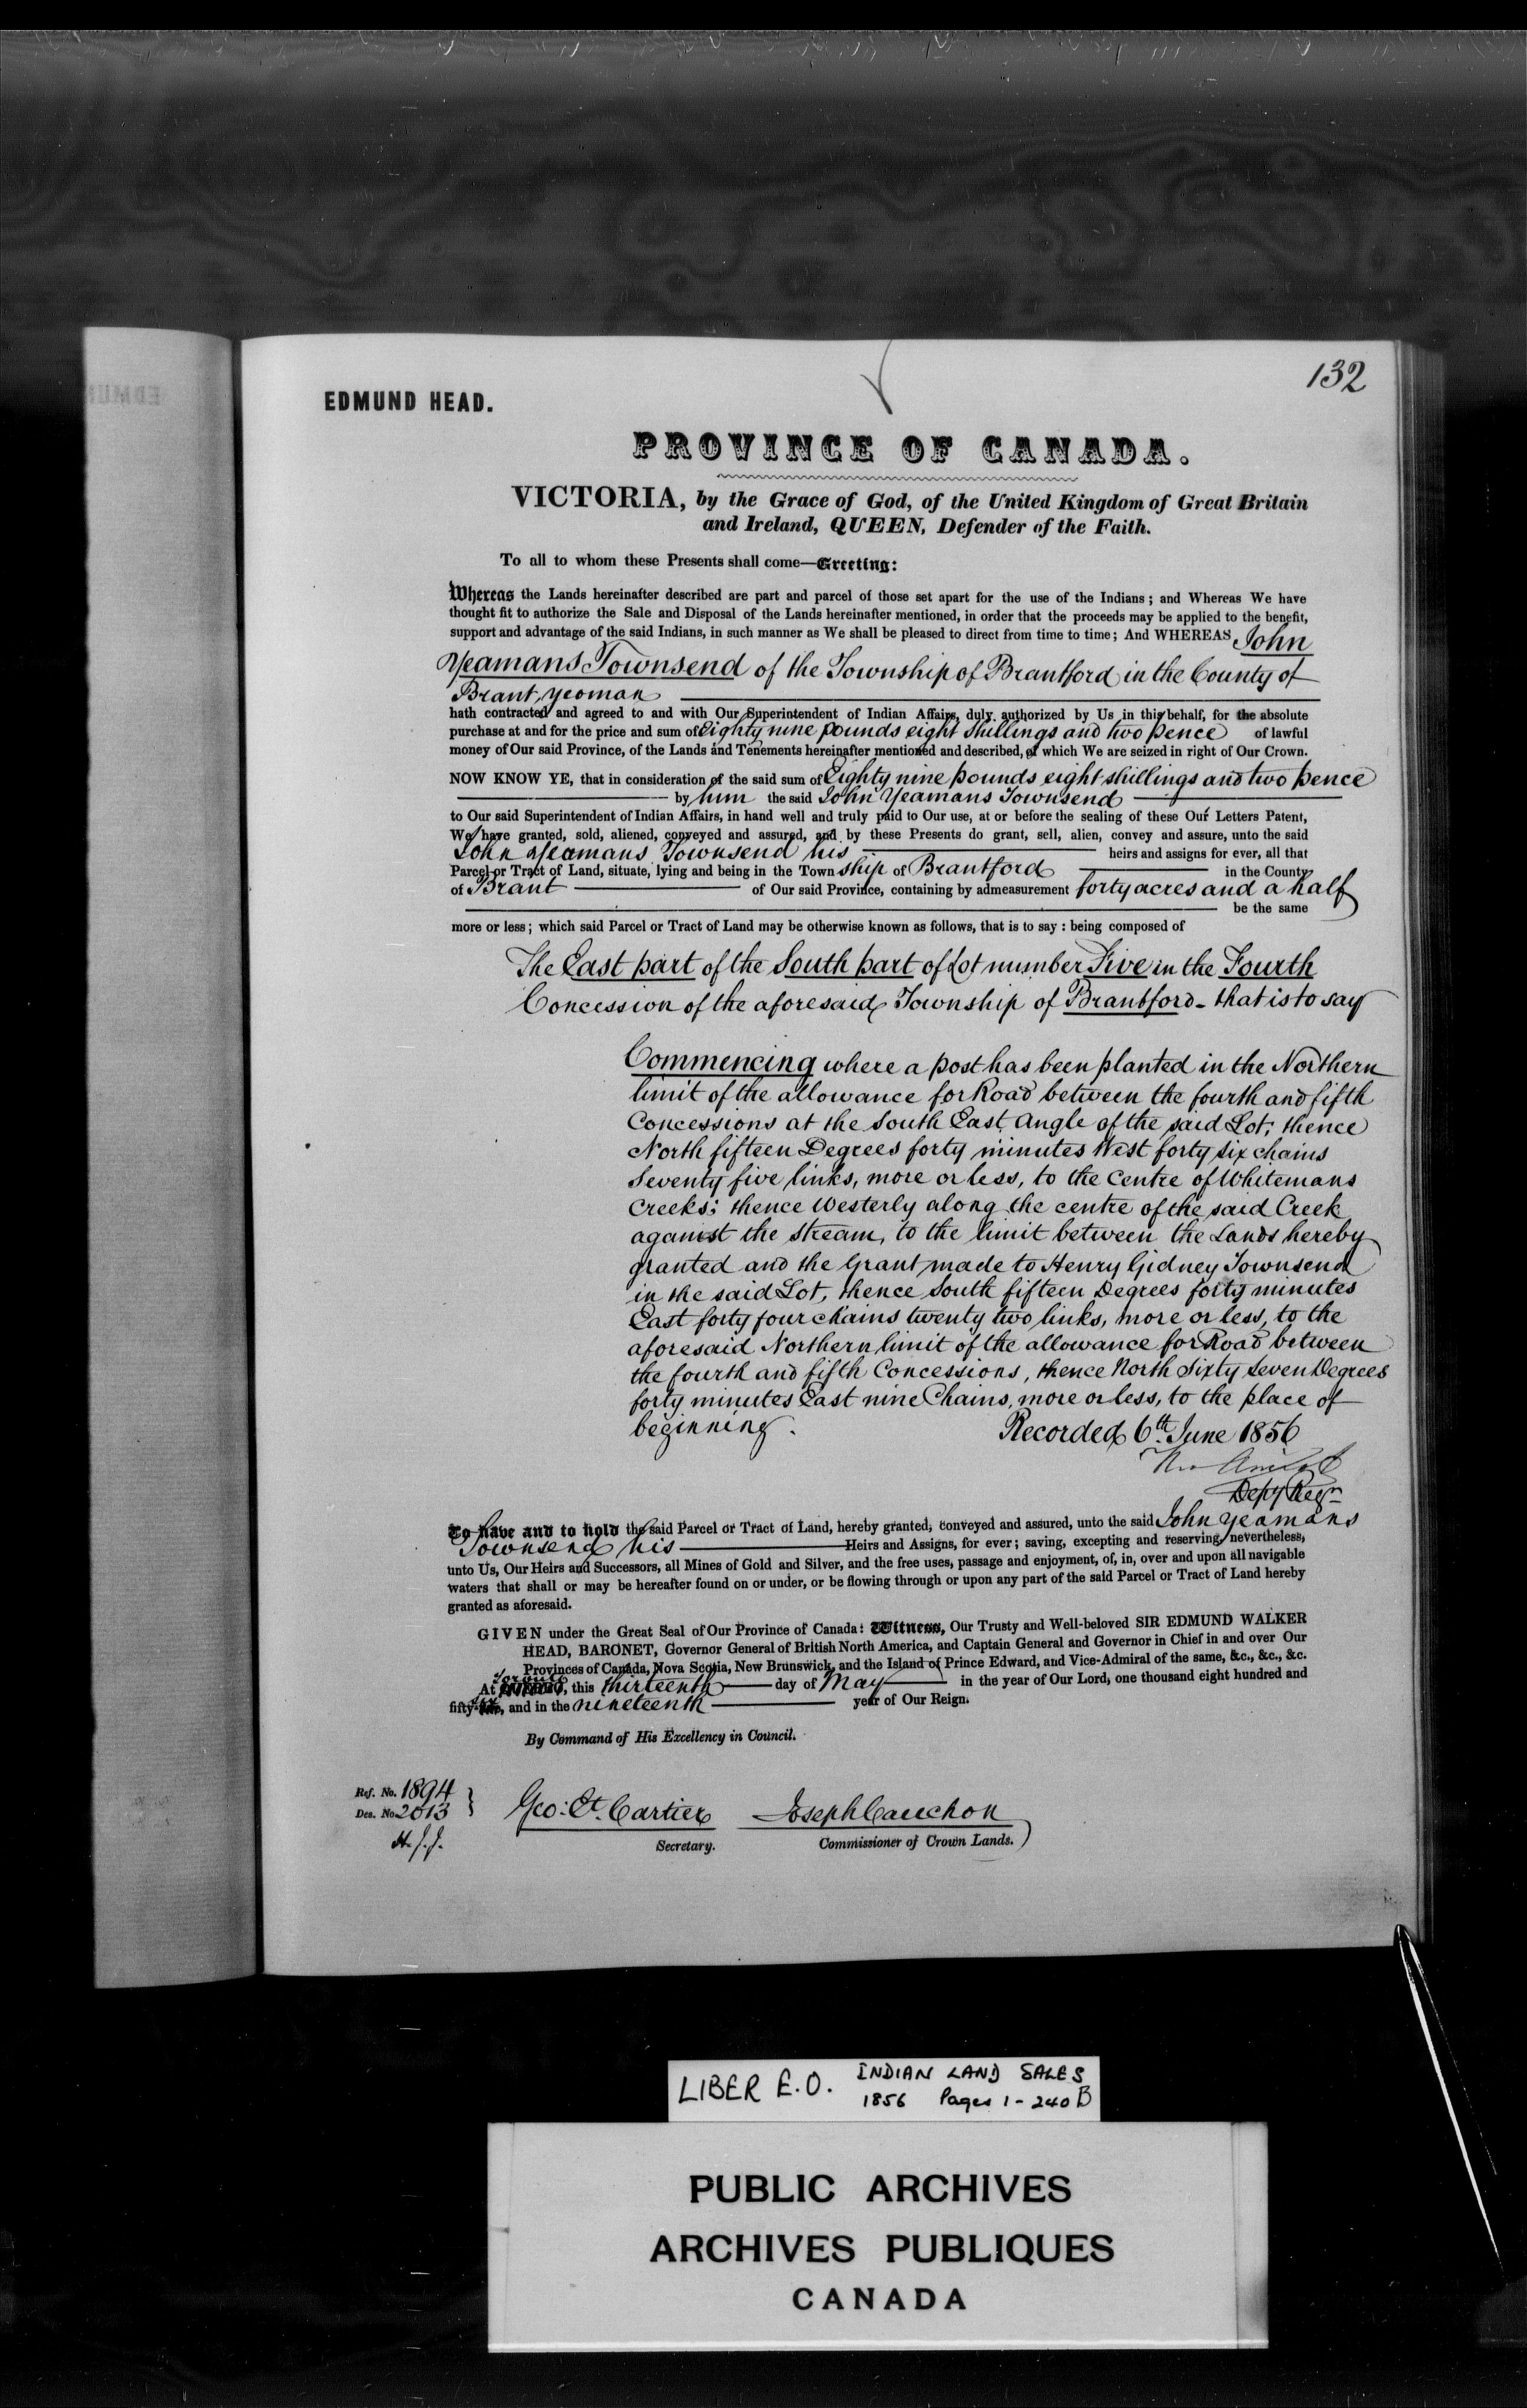 132
EDMUND HEAD.
PROVINCE OF CANADA.
VICTORIA, by the Grace of God, of the United Kingdom of Great Britain
and Ireland, QUEEN, Defender of the Faith.
To all to whom these Presents shall come—Greeting:
Whereas the Lands hereinafter described are part and parcel of those set apart for the use of the Indians; and Whereas We have
thought fit to authorize the Sale and Disposal of the Lands hereinafter mentioned, in order that the proceeds may be applied to the benefit,
support and advantage of the said Indians, in such manner as We shall be pleased to direct from time to time; And WHEREAS John
Yeamans Townsend of the Township of Brantford in the County of
Brant, yeoman
hath contracted and agreed to and with Our Superintendent of Indian Affairs, duly authorized by Us in this behalf, for the absolute
purchase at and for the price and sum of Eighty nine pounds eight shillings and two pence of lawful
money of Our said Province, of the Lands and Tenements hereinafter mentioned and described, of which We are seized in right of Our Crown.
NOW KNOW YE, that in consideration of the said sum of Eighty nine pounds eight shillings and two pence
by him the said John Yeamans Townsend
to Our said Superintendent of Indian Affairs, in hand well and truly paid to Our use, at or before the sealing of these Our Letters Patent,
We have granted, sold, aliened, conveyed and assured, and by these Presents do grant, sell, alien, convey and assure, unto the said
John Yeamans Townsend his heirs and assigns for ever, all that
Parcel or Tract of Land, situate, lying and being in the Township of Brantford in the County
of Brant of Our said Province, containing by admeasurement forty acres and a half
be the same
more or less; which said Parcel or Tract of Land may be otherwise known as follows, that is to say: being composed of
The East part of the South part of Lot number Five in the Fourth
Concession of the aforesaid Township of Brantford - that is to say
Commencing where a post has been planted in the Northern
limit of the allowance for Road between the fourth and fifth
Concessions at the South East Angle of the said Lot; thence
North fifteen Degrees forty minutes West forty six chains
seventy five links, more or less, to the Centre of Whitemans
Creeks; thence Westerly along the centre of the said Creek
against the stream, to the limit between the Lands hereby
granted and the Grant made to Henry Gidney Townsend
in the said Lot, thence South fifteen Degrees forty minutes
East forty four chains twenty two links, more or less, to the
aforesaid Northern limit of the allowance for Road between
the fourth and fifth Concessions, thence North Sixty Seven Degrees
forty minutes East nine Chains, more or less, to the place of
beginning.
Recorded 6th June 1856
Depy Regr
To have and to hold the said Parcel or Tract of Land, hereby granted, conveyed and assured, unto the said John Yeamans
Townsend his Heirs and Assigns, for ever; saving, excepting and reserving, nevertheless,
unto Us, Our Heirs and Successors, all Mines of Gold and Silver, and the free uses, passage and enjoyment, of, in, over and upon all navigable
waters that shall or may be hereafter found on or under, or be flowing through or upon any part of the said Parcel or Tract of Land hereby
granted as aforesaid.
GIVEN under the Great Seal of Our Province of Canada: Witness, Our Trusty and Well-beloved SIR EDMUND WALKER
HEAD, BARONET, Governor General of British North America, and Captain General and Governor in Chief in and over Our
Provinces of Canada, Nova Scotia, New Brunswick, and the Island of Prince Edward, and Vice-Admiral of the same, &c., &c., &c.
At Toronto, this thirteenth day of May in the year of Our Lord, one thousand eight hundred and
fifty-six, and in the nineteenth year of Our Reign.
By Command of His Excellency in Council.
Ref. No. 1894
Des. No. 2013
Geo: Et. Cartier
Joseph Cauchon
Secretary.
Commissioner of Crown Lands.
LIBER E.O. INDIAN LAND SALES
1856 Pages 1 - 240 B
PUBLIC ARCHIVES
ARCHIVES PUBLIQUES
CANADA